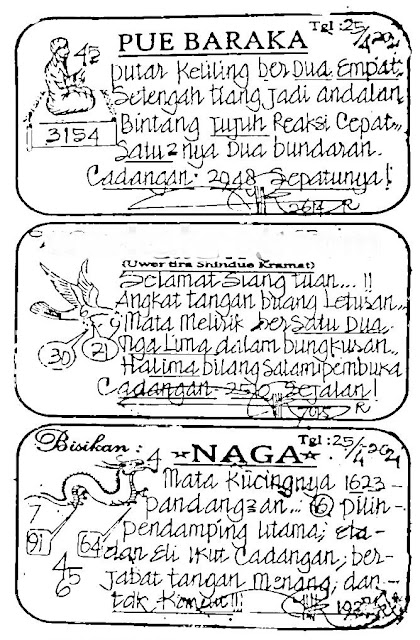 Tgl : 25/4-202
PUE BARAKA
45
putar Keliling ber Dua Empat
Setengah tiang Jadi andalan
3154
Bintang Tujuh Reaksi Cepat...
Satu2nya Dua bundaran.
Cadangan: 2948 Sepatunya!
2614 R
(Uwer tira Shindue Kramat)
Selamat Siang tuan...!!
Angkat tangan buang Letusan...
Mata Melirik ber Satu Dua
30 21
Nga Lima dalam bungkusan..
Halima bilang salam pembuka
Cadangan 2510 Sejalan!
7015 R
Tgl : 25/4-202
Bisikan :
NAGA
4
Mata Kucingnya 1623 -
pandangan... 6 pilih -
7
pendamping utama; eta -
91 64
dan Eli Ikut Cadangan; ber-
45
6
Jabat tangan Menang, dan -
tdk Komen!!!
192